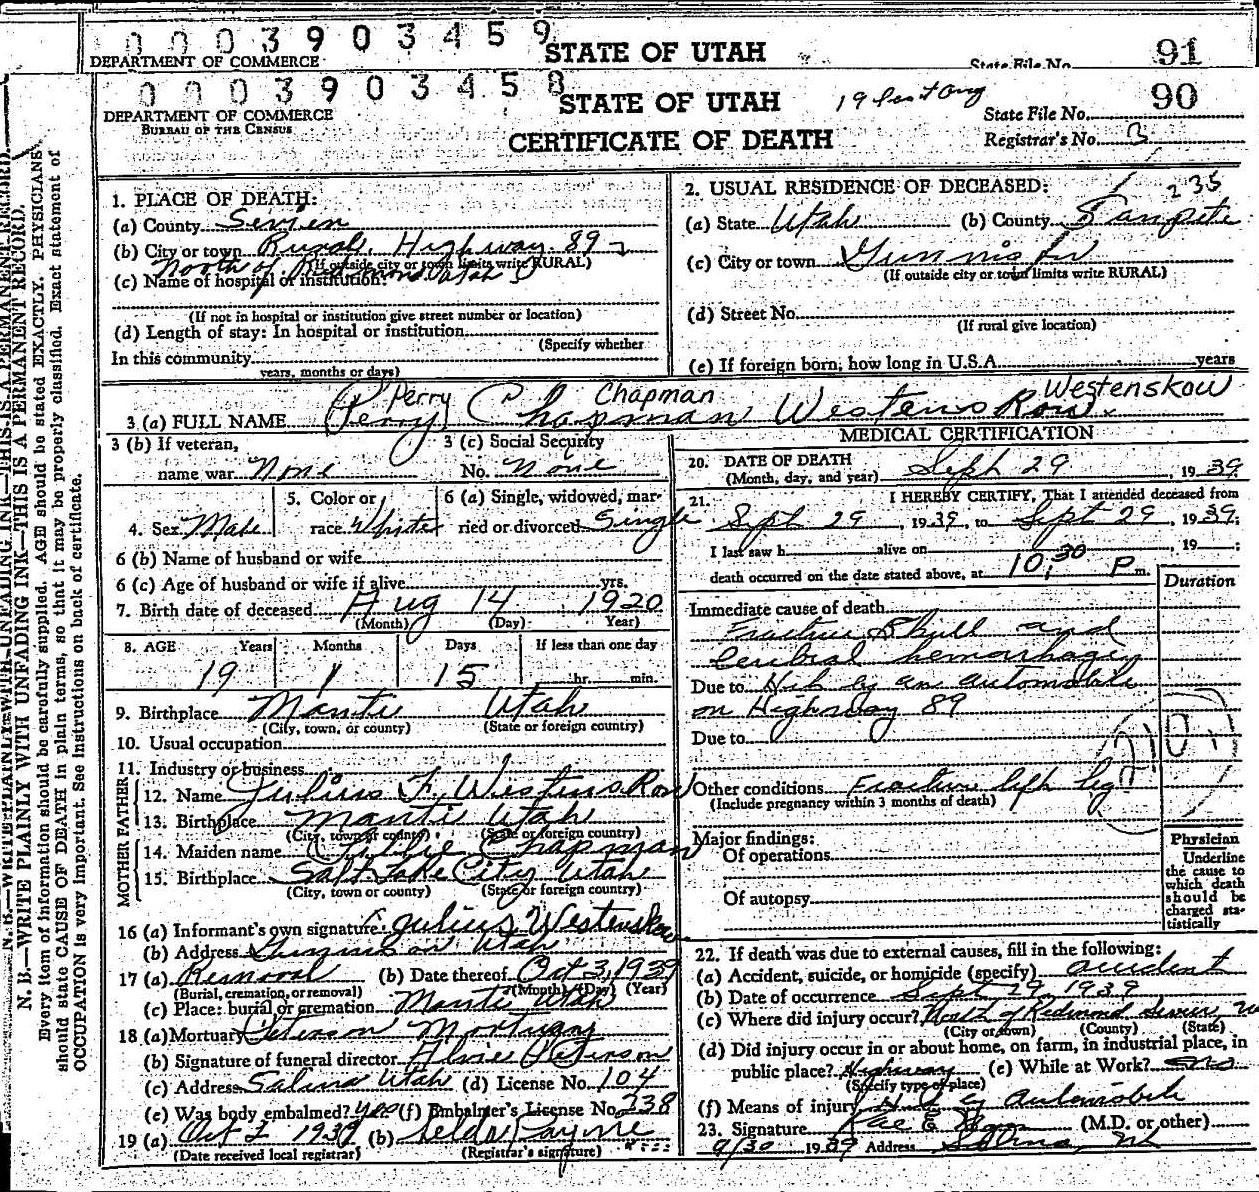 0003903459
STATE OF UTAH
91
DEPARTMENT OF COMMERCE
State File No.
0003903458
STATE OF UTAH
90
DEPARTMENT OF COMMERCE
State File No.
BUREAU OF THE CENSUS
CERTIFICATE OF DEATH
Registrar's No. 3
N. B.—WRITE PLAINLY WITH UNFADING INK—THIS IS A PERMANENT RECORD.
N. B.—WRITE PLAINLY WITH UNFADING INK—THIS IS A PERMANENT RECORD.
Every item of information should be carefully supplied. AGE should be stated EXACTLY. PHYSICIANS
should state CAUSE OF DEATH in plain terms, so that it may be properly classified. Exact statement of
OCCUPATION is very important. See instructions on back of certificate.
1. PLACE OF DEATH:
(a) County Sevier
(b) City or town Rural, Highway 89
(If outside city or town limits write RURAL)
North of Redmond Utah
(c) Name of hospital or institution:
(If not in hospital or institution give street number or location)
(d) Length of stay: In hospital or institution
(Specify whether
In this community
years, months or days)
2. USUAL RESIDENCE OF DECEASED:
235
(a) State Utah (b) County Sanpete
(c) City or town Gunnison
(If outside city or town limits write RURAL)
(d) Street No.
(If rural give location)
(e) If foreign born, how long in U.S.A. years
Perry Chapman Westenskow
3 (a) FULL NAME Perry Chapman Westenskow
3 (b) If veteran,
name war None
3 (c) Social Security
No. None
4. Sex Male
5. Color or
race White
6 (a) Single, widowed, mar-
ried or divorced Single
6 (b) Name of husband or wife
6 (c) Age of husband or wife if alive yrs.
7. Birth date of deceased Aug 14 1920
(Month) (Day) Year)
8. AGE Years Months Days If less than one day
19 1 15 hr. min.
9. Birthplace Manti Utah
(City, town, or county) (State or foreign country)
10. Usual occupation
11. Industry or business
FATHER
12. Name Julius F. Westenskow
13. Birthplace Manti Utah
(City, town or county) (State or foreign country)
MOTHER
14. Maiden name Lillie Chapman
15. Birthplace Salt Lake City Utah
(City, town or county) (State or foreign country)
16 (a) Informant's own signature Julius Westenskow
(b) Address Gunnison Utah
17 (a) Removal (b) Date thereof Oct 3, 1939
(Burial, cremation, or removal) (Month) (Day) (Year)
(c) Place: burial or cremation Manti Utah
18 (a) Mortuary Peterson Mortuary
(b) Signature of funeral director Peterson
(c) Address Salina Utah (d) License No. 104
(e) Was body embalmed? yes (f) Embalmer's License No. 238
19 (a) Oct 2 1939 (b) Selda Payne
(Date received local registrar) (Registrar's signature)
MEDICAL CERTIFICATION
20. DATE OF DEATH Sept 29 1939
(Month, day, and year)
21. I HEREBY CERTIFY, That I attended deceased from
Sept 29, 1939, to Sept 29, 1939;
I last saw h alive on , 19 ;
death occurred on the date stated above, at 10:30 P m.
Duration
Immediate cause of death
Fracture Skull and
Cerebral hemorhage
Due to Hit by an automobile
on Highway 89
Due to
210
Other conditions Fracture left leg
(Include pregnancy within 3 months of death)
Major findings:
Of operations
Of autopsy
Physician
Underline
the cause to
which death
should be
charged sta-
tistically
22. If death was due to external causes, fill in the following:
(a) Accident, suicide, or homicide (specify) accident
(b) Date of occurrence Sept 29 1939
(c) Where did injury occur? North of Redmond Sevier
(City or town) (County) (State)
(d) Did injury occur in or about home, on farm, in industrial place, in
public place? Highway (e) While at Work? no
(Specify type of place)
(f) Means of injury Hit by automobile
23. Signature Rae E (M.D. or other)
9/30 1939 Address Salina, Ut